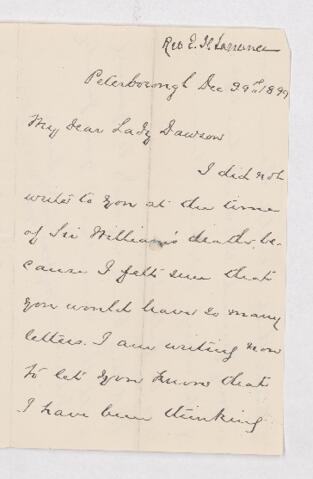 Rev E. F. Torrance
Peterborough Dec 29th 1899
My dear Lady Dawson
I did not
write to you at the time
of Sir William's death, be-
cause I felt sure that
you would have so many
letters. I am writing now
to let you know that
I have been thinking